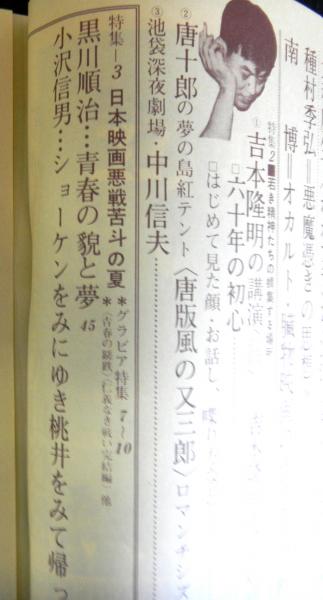 種村季弘＝悪魔憑きの
南　博＝オカルト・
特集2■若き精神たちの
①吉本隆明の講演
□六十年の初心
□はじめて見た顔・お話し、
②唐十郎の夢の島紅テント〈唐版風の又三郎〉ロマンチシズ
③池袋深夜劇場・中川信夫
特集—3 日本映画悪戦苦斗の夏
＊グラビア特集 7〜10
＊〈青春の蹉跌〉〈仁義なき戦い完結編〉他
黒川順治…青春の貌と夢 45
小沢信男…ショーケンをみにゆき桃井をみて帰っ